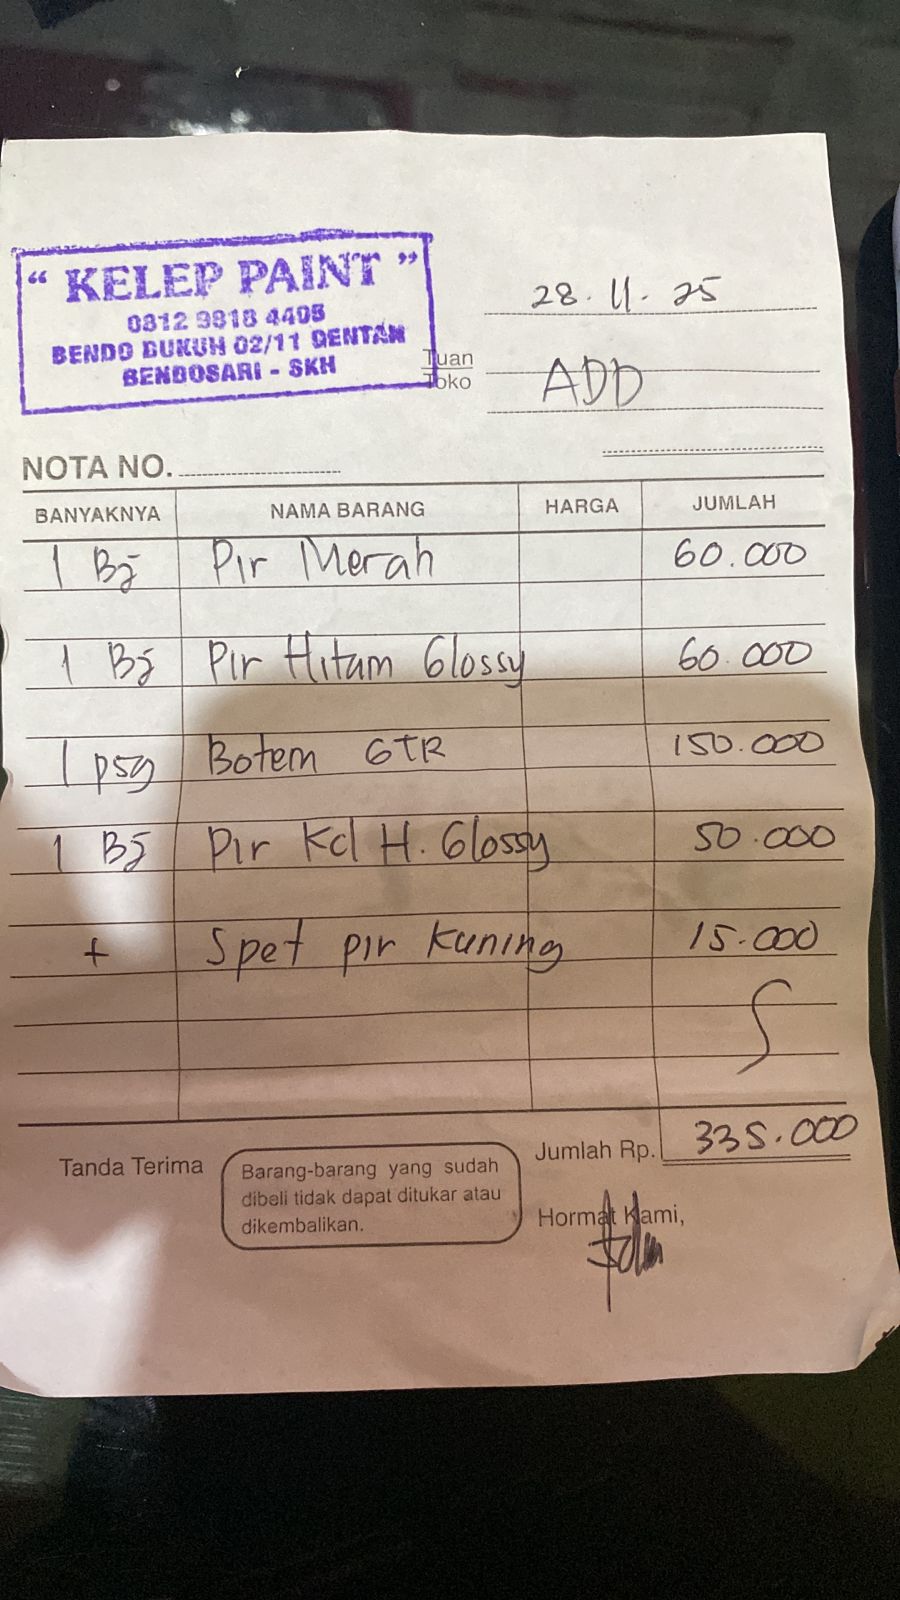 " KELEP PAINT "
0812 9818 4405
BENDO DUKUH 02/11 GENTAN
BENDOSARI - SKH
28.11.25
Tuan
Toko
ADD
NOTA NO.
BANYAKNYA NAMA BARANG HARGA JUMLAH
1 Bj Pir Merah 60.000
1 Bj Pir Hitam Glossy 60.000
1 psg Botem GTR 150.000
1 Bj Pir Kcl H. Glossy 50.000
+ Spet pir Kuning 15.000
Jumlah Rp. 335.000
Tanda Terima
Barang-barang yang sudah
dibeli tidak dapat ditukar atau
dikembalikan.
Hormat Kami,